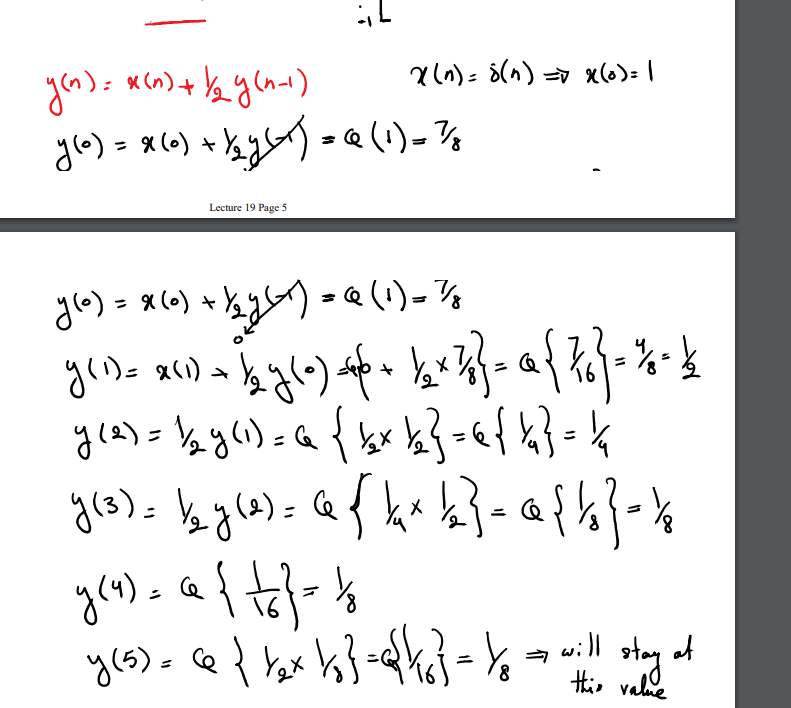 y(n) = x(n) + 1/2 y(n-1)    x(n) = δ(n) ⇒ x(0) = 1
y(0) = x(0) + 1/2 y(-1) = Q(1) = 7/8
Lecture 19 Page 5
y(0) = x(0) + 1/2 y(-1) = Q(1) = 7/8
0
y(1) = x(1) + 1/2 y(0) = Q{0 + 1/2 × 7/8} = Q{7/16} = 4/8 = 1/2
y(2) = 1/2 y(1) = Q{1/2 × 1/2} = Q{1/4} = 1/4
y(3) = 1/2 y(2) = Q{1/4 × 1/2} = Q{1/8} = 1/8
y(4) = Q{1/16} = 1/8
y(5) = Q{1/2 × 1/8} = Q{1/16} = 1/8 ⇒ will stay at
this value